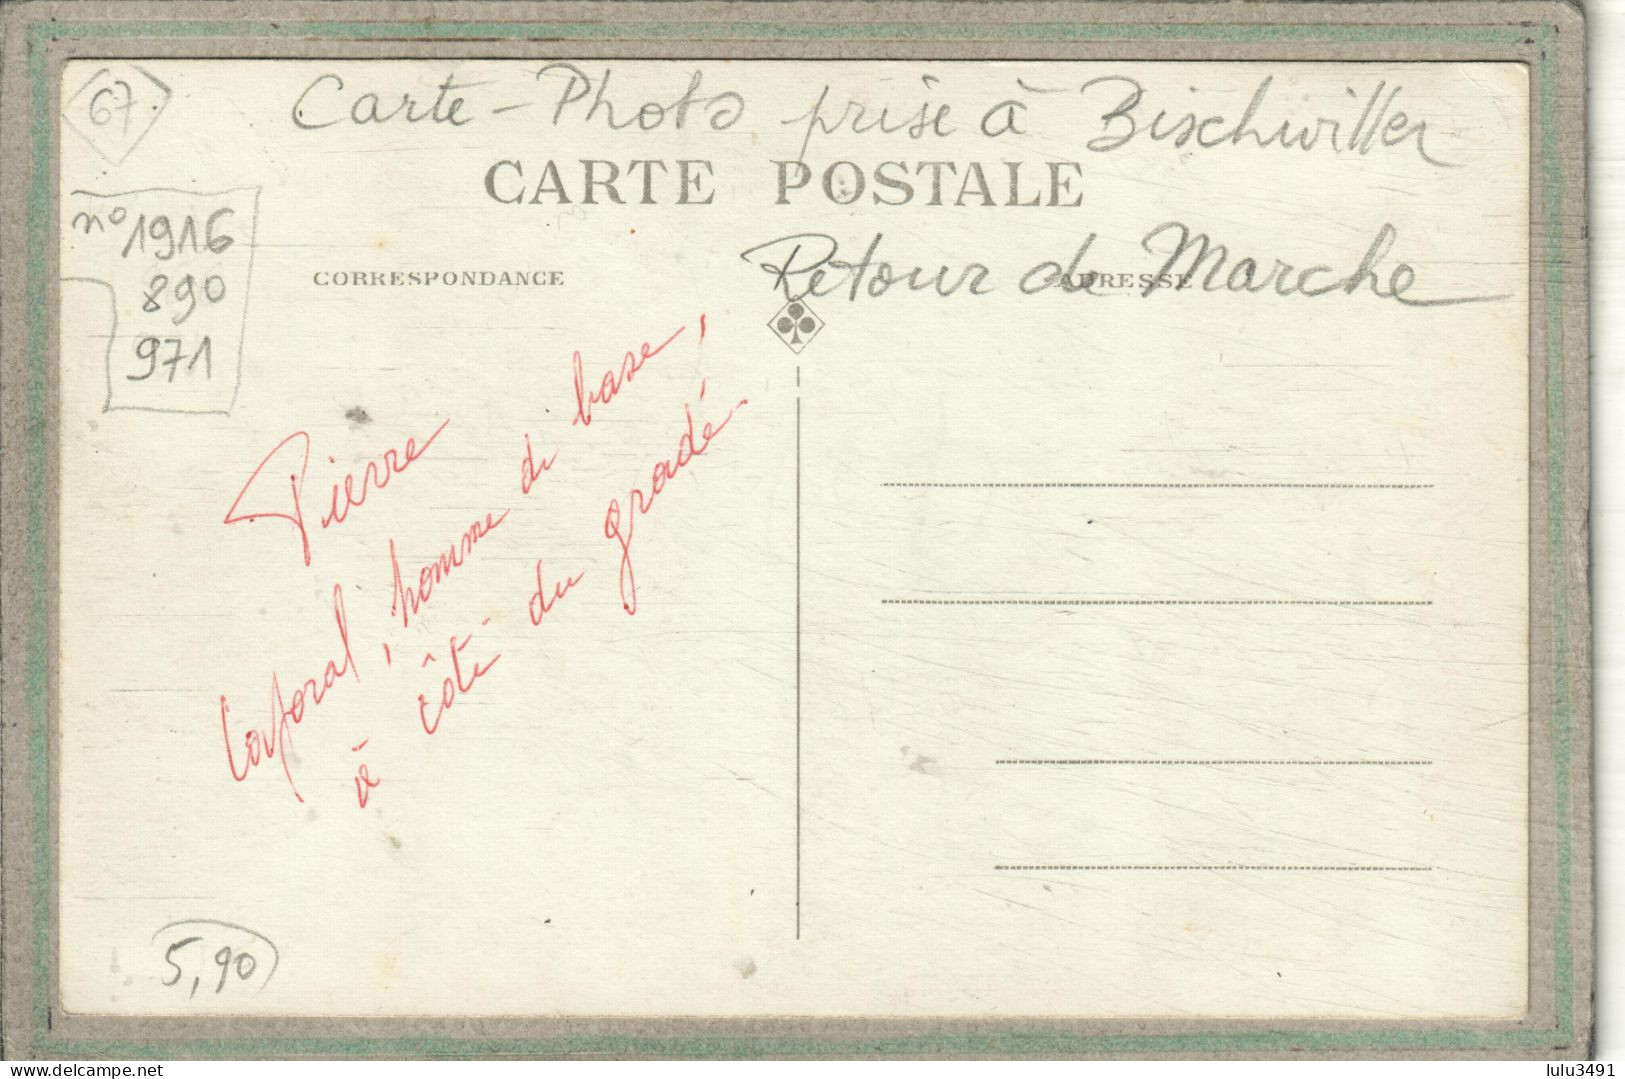 67
Carte-Photo prise à Bischwiller
CARTE POSTALE
nº 1916
890
971
Retour de Marche
CORRESPONDANCE
ADRESSE
Pierre
Caporal, homme de base,
à côté du gradé
5,90
delcampe.net
lulu3491